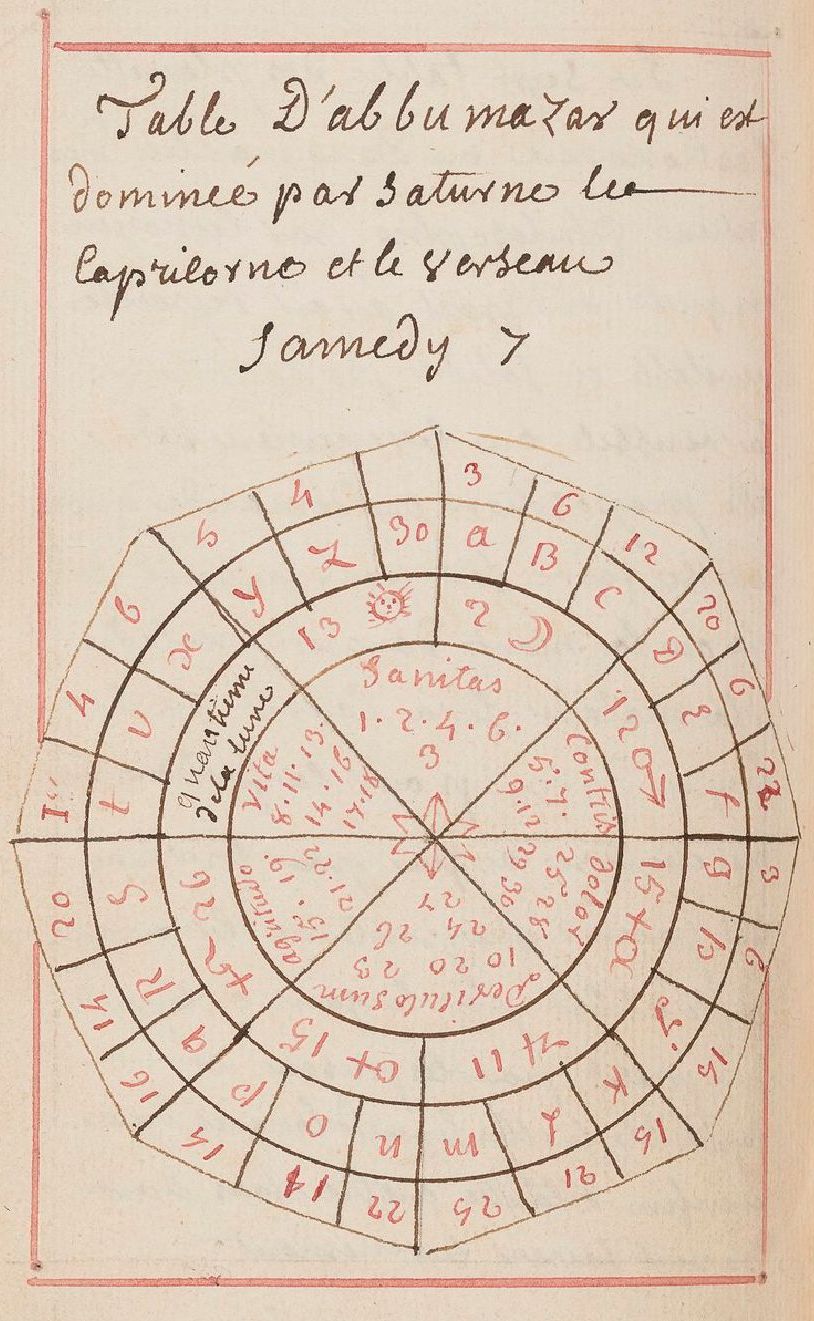 Table D'abbumazar qui est
dominéé par Saturne le
Capricorne et le Verseau
Samedy 7
3 6 12 20 6 22 3 6 15 15 21 25 22 14 14 16 14 20 1er 4 6 5 4
a B C D E f g h y K L m n o p q R S t v x y Z 30
2
12
15
11
15
26
quantieme
de la lune
13
Sanitas
1 · 2 · 4 · 6 ·
3
Contris
5 · 7 ·
9 12
dolor
25 28
29 30
Periculosum
10 20 23
24 26
27
agritudo
15 · 19 ·
21 · 22
Vita
8 · 11 · 13 ·
14 · 16
17 · 18